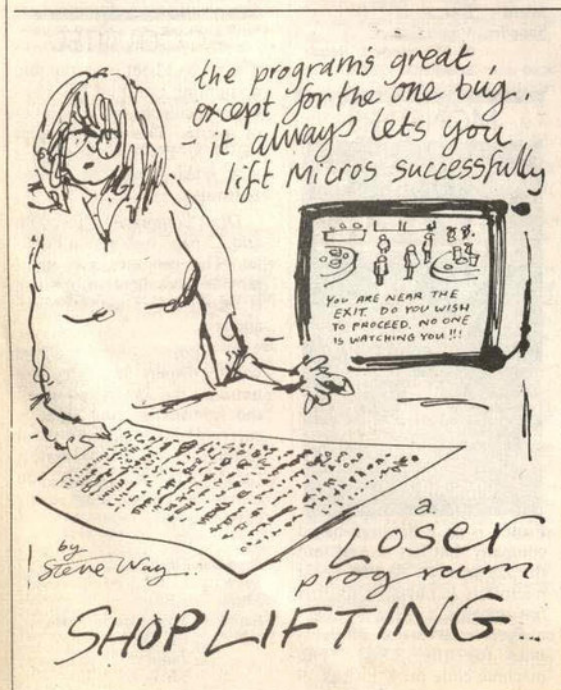 the program's great,
except for the one bug.
- it always lets you
lift Micros successfully
YOU ARE NEAR THE
EXIT. DO YOU WISH
TO PROCEED. NO ONE
IS WATCHING YOU !!!
by
Steve Way
a
Loser
program
SHOPLIFTING...